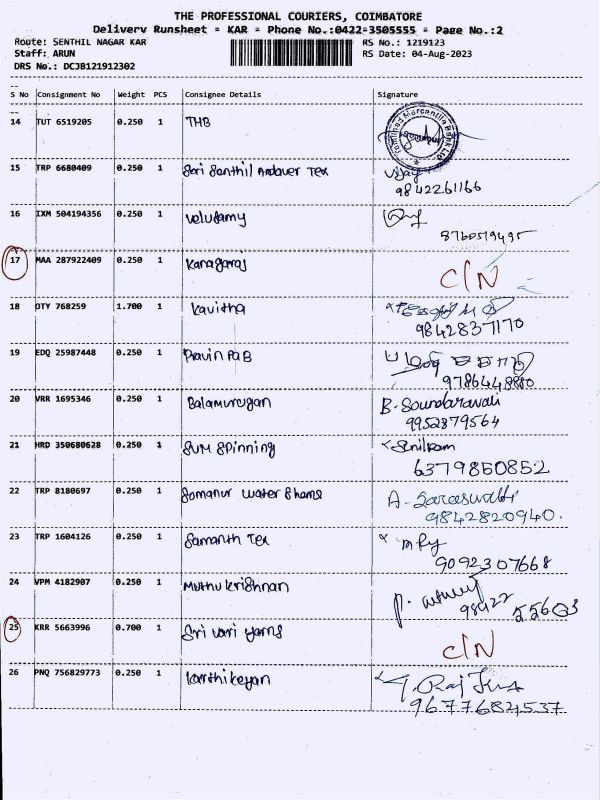 THE PROFESSIONAL COURIERS, COIMBATORE
Delivery Runsheet = KAR = Phone No.:0422-3505555 = Page No.:2
Route: SENTHIL NAGAR KAR RS No.: 1219123
Staff: ARUN RS Date: 04-Aug-2023
DRS No.: DCJB121912302
S No Consignment No Weight PCS Consignee Details Signature
14 TUT 6519205 0.250 1 TMB
Tamilnad Mercantile Bank Ltd
15 TRP 6680409 0.250 1 Sori Santhil Andaver Tex Vijay
9842261166
16 IXM 504194356 0.250 1 Velusamy
8760519495
17 MAA 287922409 0.250 1 Kanagaraj C/N
18 DTY 768259 1.700 1 Kavitha
9842837170
19 EDQ 25987448 0.250 1 Pravin Pa B
9786448880
20 VRR 1695346 0.250 1 Balamurugan B. Soundaravali
9952879564
21 HRD 350680628 0.250 1 SUM Spinning
6379850852
22 TRP 8180697 0.250 1 Somanur Water Shams A. Saraswathi
9842820940.
23 TRP 1604126 0.250 1 Samanth Tex
9092307668
24 VPM 4182907 0.250 1 Muthu krishnan P.
98422 55603
25 KRR 5663996 0.700 1 Sri vari yarns C/N
26 PNQ 756829773 0.250 1 Karthikeyan
9677684537